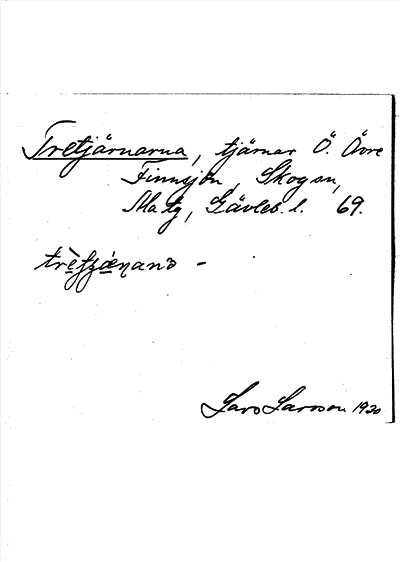 Tretjärnarna, tjärnar Ö. Övre
Finnsjön, Skogen,
Ma tg, Gävleb. l. 69.
–
Lars Larsson 1920